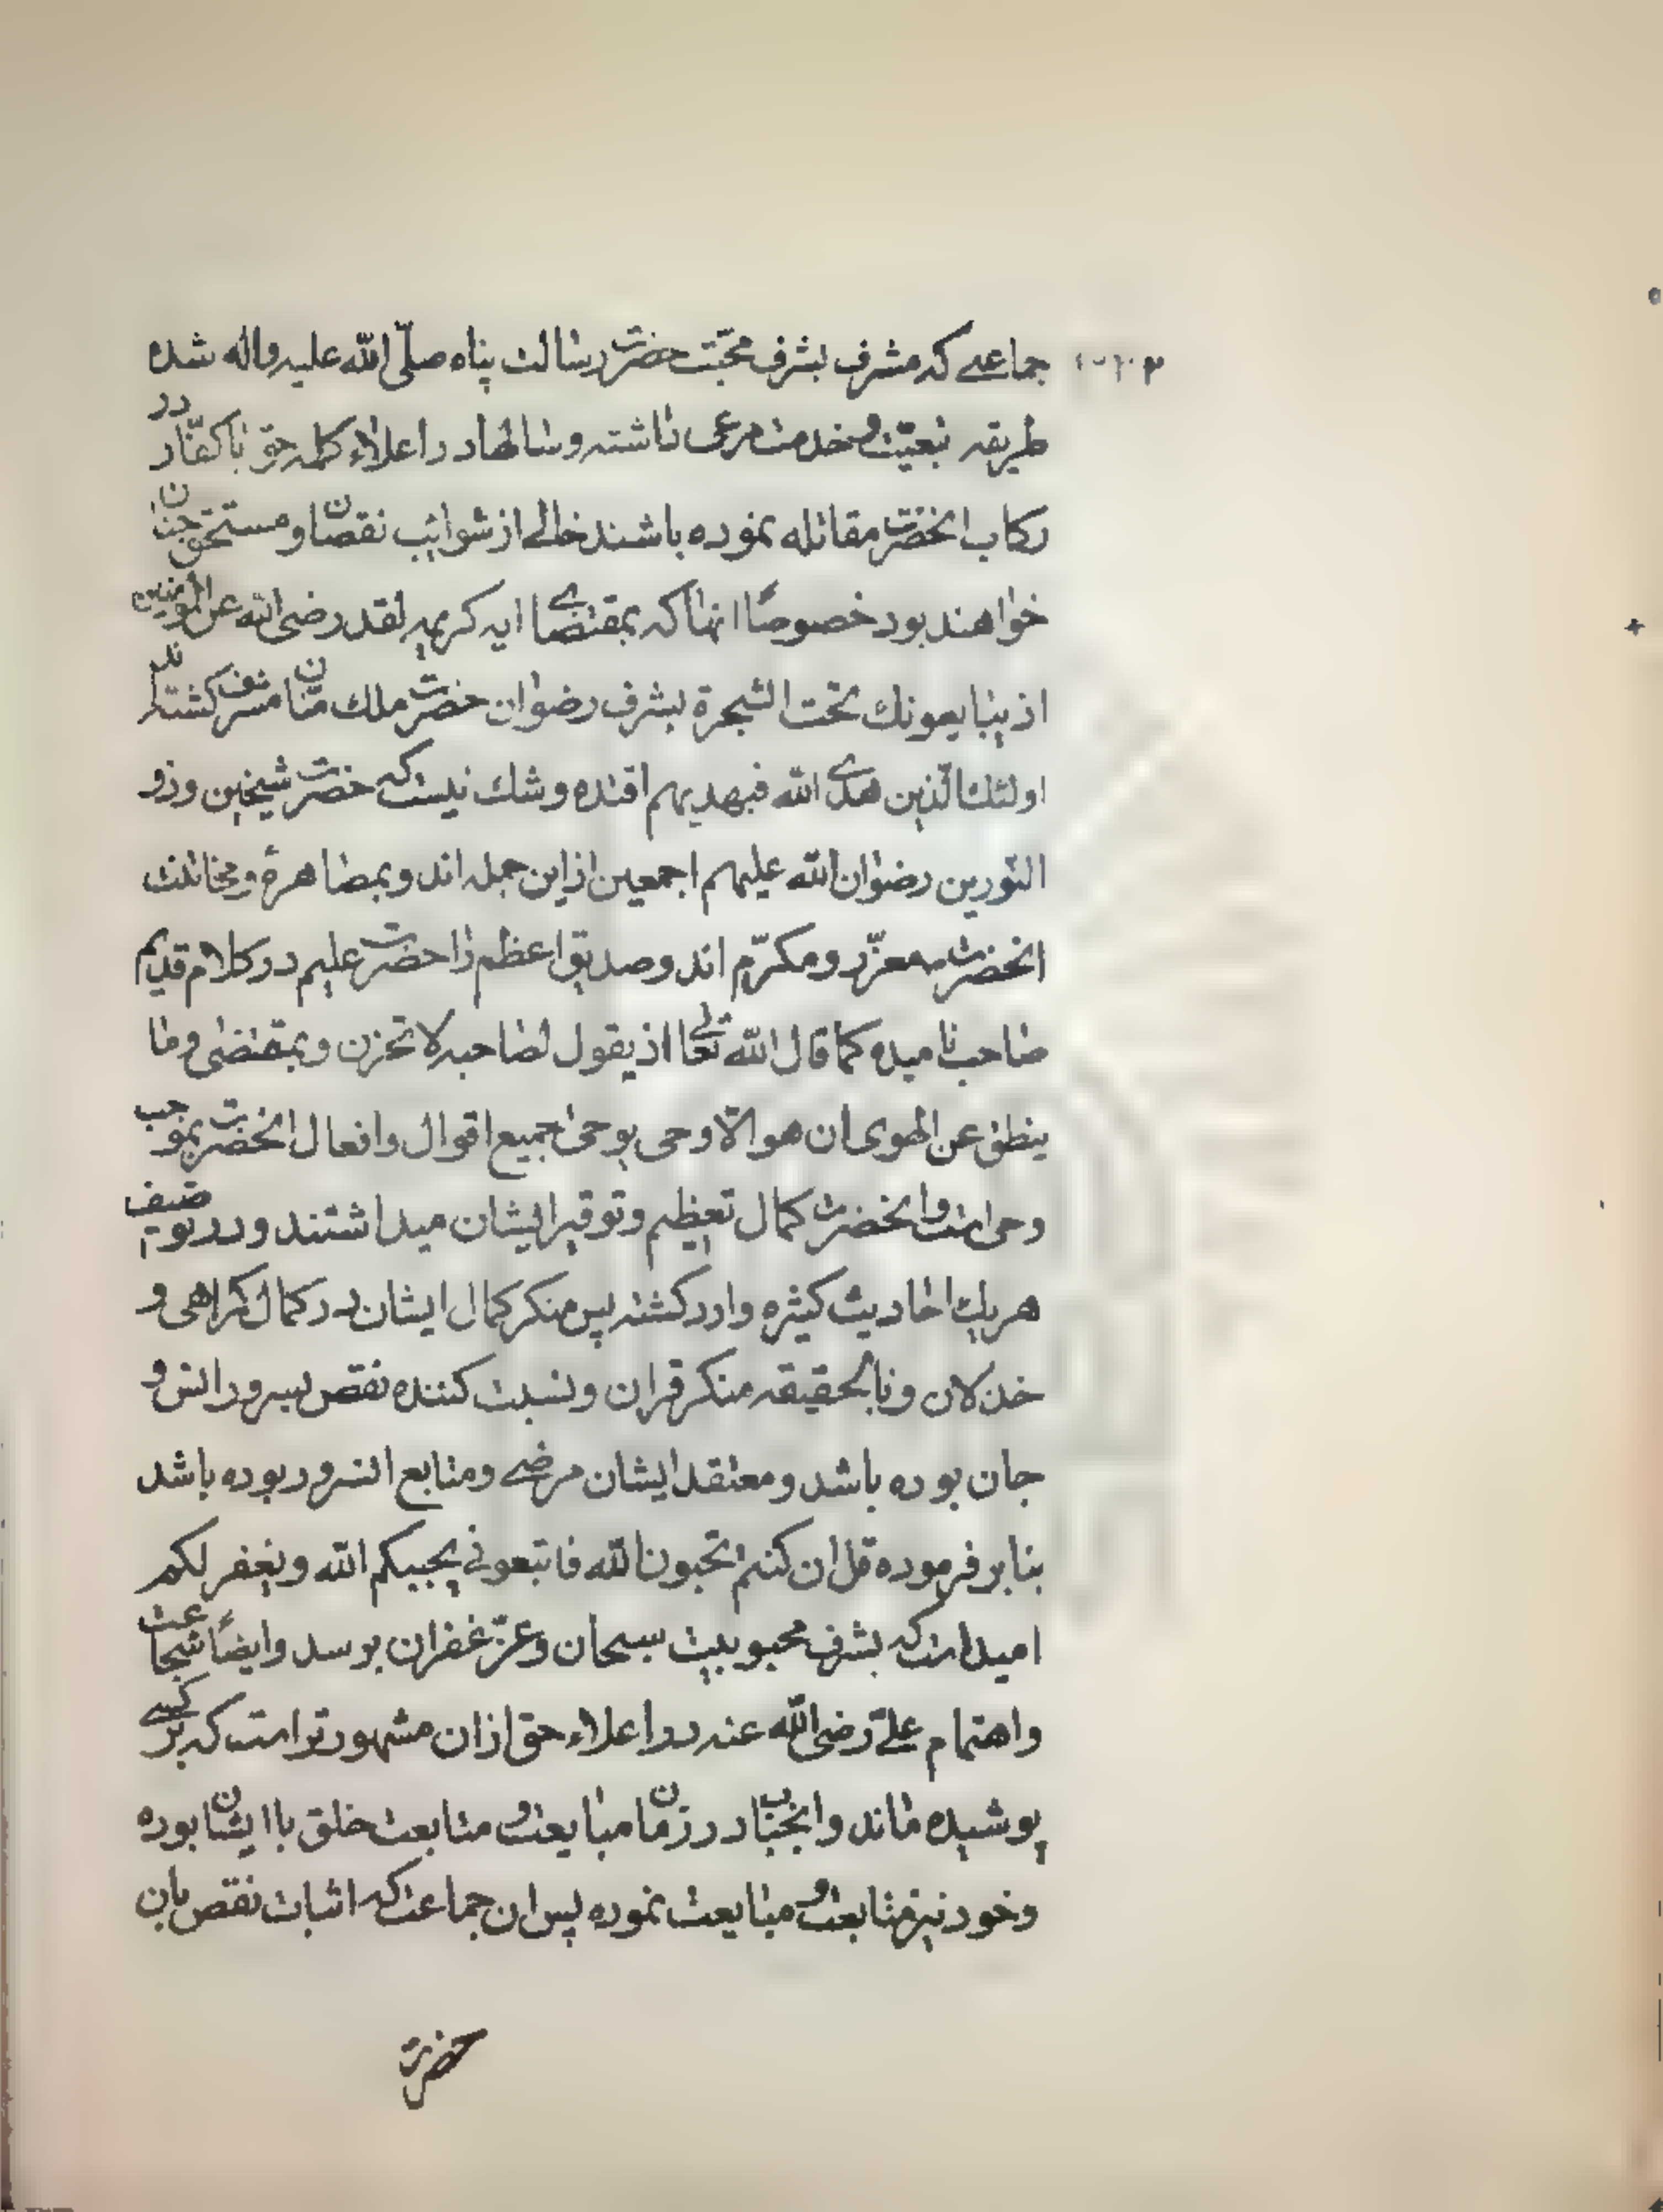 جماعے که مشرف بشرف محبّت حضرت رسالت پناه صلّی الله علیه واله شده
طریقه تبعیّت و خدمت مرعی داشته و سالها در اعلاء کلمه حق با کفّار در
رکاب انحضرت مقاتله نموده باشند خالے از شوائب نقصان و مستحق جنان
خواهند بود خصوصًا انها که بمقتضاے ایه کریمه لقد رضی الله عن المؤمنین
اذ یبایعونک تحت الشجرة بشرف رضوان حضرت ملک منّان مشرف کشته اند
اولئک الّذین هدے الله فبهدیهم اقتده و شک نیست که حضرت شیخین و ذو
النّورین رضوان الله علیهم اجمعین از این جمله اند و بمصاهرة و مخاتنت
انحضرت معزّز و مکرّم اند و صدیق اعظم را حضرت علیم در کلام قدیم
صاحب نامیده کما قال الله تعالے اذ یقول لصاحبه لا تحزن و بمقتضی وما
ینطق عن الهوی ان هو الّا وحی یوحی جمیع اقوال وافعال انحضرت بموجب
وحی است و انحضرت کمال تعظیم و توقیر ایشان میداشتند و در توصیف
هر یک احادیث کثیره وارد کشته پس منکر کمال ایشان در کمال کمراهی و
خذلان و بالحقیقه منکر قران و نسبت کننده نقص بسرور انس و
جان بوده باشد و معتقد ایشان مرضے و متابع انسرور بوده باشد
بنا بر فرموده قل ان کنتم تحبون الله فاتبعونی یحببکم الله و یغفر لکم
امید است که بشرف محبوبیت سبحان و عزّ غفران برسد وایضًا شجاعت
واهتمام علیّ رضی الله عنه در اعلاء حق ازان مشهورتر است که بر کسے
پوشیده ماند و انجناب در زمان مبایعت و متابعت خلق با ایشان بوده
و خود نیز متابعت و مبایعت نموده پس ان جماعت که اثبات نقص بان
حضرت